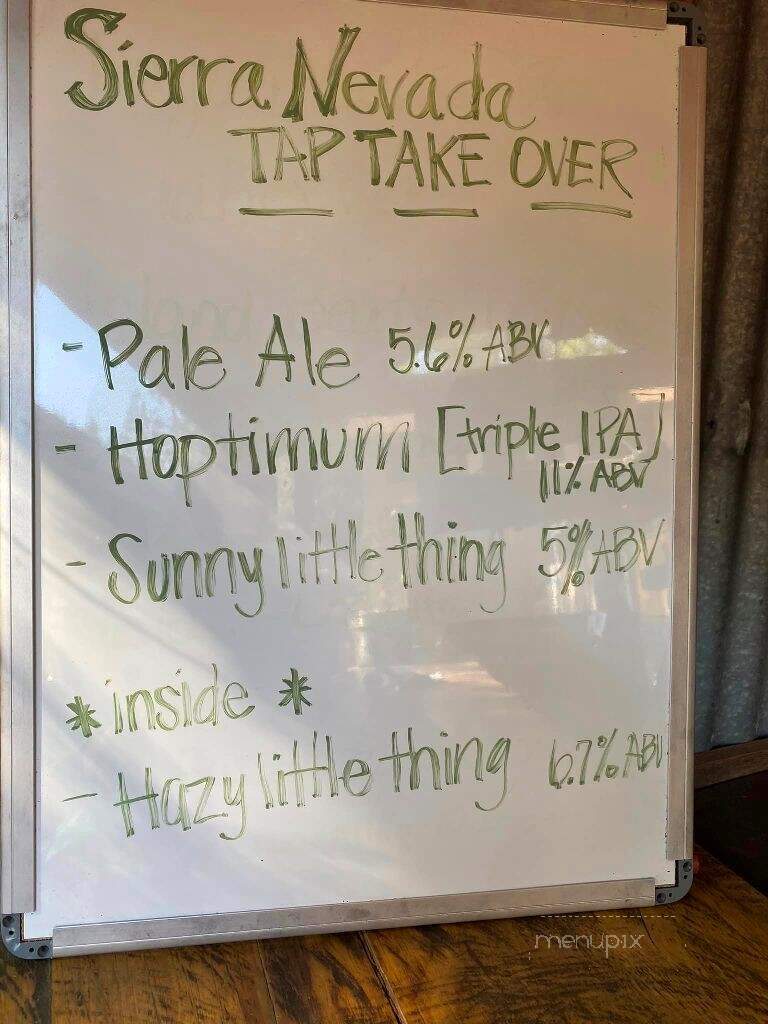 Sierra Nevada
TAP TAKE OVER
- Pale Ale 5.6% ABV
- Hoptimum [triple IPA]
11% ABV
- Sunny little thing 5% ABV
*inside*
- Hazy little thing 6.7% ABV
menupix